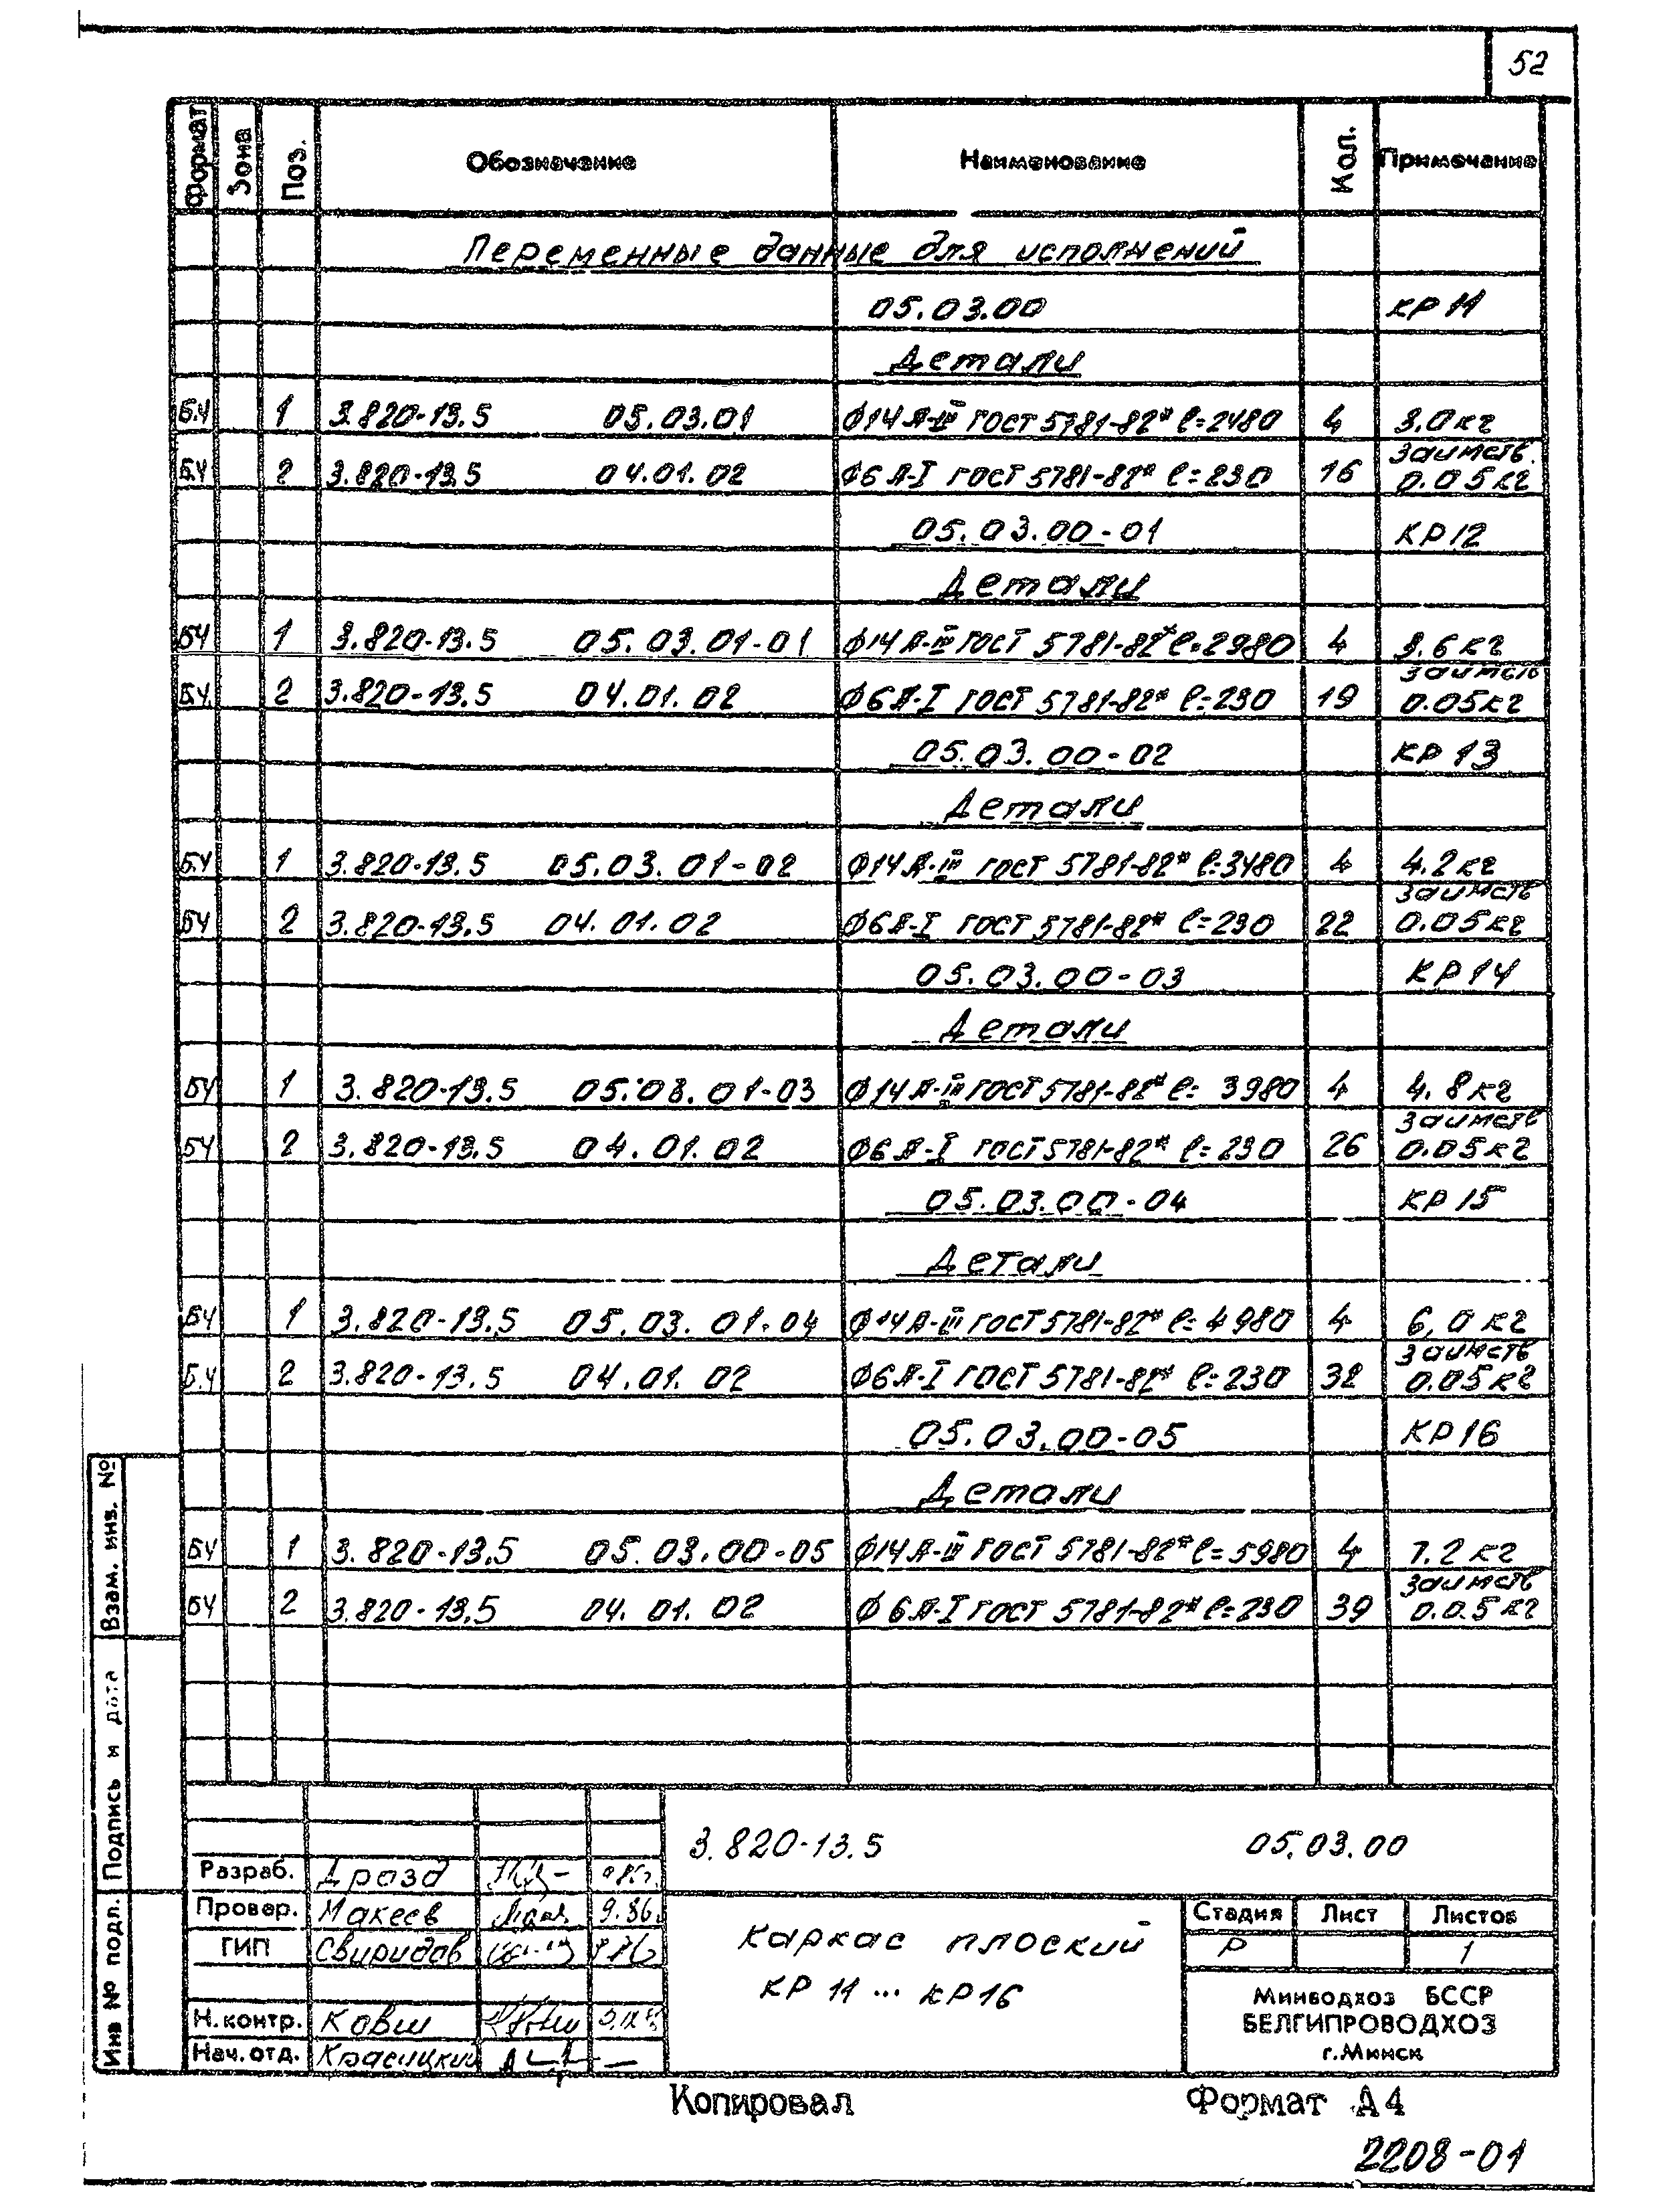 52
Формат Зона Поз. Обозначение Наименование Кол. Примечание
Переменные данные для исполнений
05.03.00 КР 11
Детали
БЧ 1 3.820-13.5 05.03.01 Ф14 А-III ГОСТ 5781-82* ℓ=2480 4 3.0 кг
БЧ 2 3.820-13.5 04.01.02 Ф6 А-I ГОСТ 5781-82* ℓ=230 16 заимств. 0.05 кг
05.03.00-01 КР 12
Детали
БЧ 1 3.820-13.5 05.03.01-01 Ф14 А-III ГОСТ 5781-82* ℓ=2980 4 3.6 кг
БЧ 2 3.820-13.5 04.01.02 Ф6 А-I ГОСТ 5781-82* ℓ=230 19 заимств 0.05 кг
05.03.00-02 КР 13
Детали
БЧ 1 3.820-13.5 05.03.01-02 Ф14 А-III ГОСТ 5781-82* ℓ=3480 4 4.2 кг
БЧ 2 3.820-13.5 04.01.02 Ф6 А-I ГОСТ 5781-82* ℓ=230 22 заимств 0.05 кг
05.03.00-03 КР 14
Детали
БЧ 1 3.820-13.5 05.03.01-03 Ф14 А-III ГОСТ 5781-82* ℓ= 3980 4 4.8 кг
БЧ 2 3.820-13.5 04.01.02 Ф6 А-I ГОСТ 5781-82* ℓ=230 26 заимств 0.05 кг
05.03.00-04 КР 15
Детали
БЧ 1 3.820-13.5 05.03.01-04 Ф14 А-III ГОСТ 5781-82* ℓ=4980 4 6,0 кг
Б.Ч 2 3.820-13.5 04.01.02 Ф6 А-I ГОСТ 5781-82* ℓ=230 32 заимств 0.05 кг
05.03.00-05 КР 16
Детали
БЧ 1 3.820-13.5 05.03.00-05 Ф14 А-III ГОСТ 5781-82* ℓ=5980 4 7.2 кг
БЧ 2 3.820-13.5 04.01.02 Ф6 А-I ГОСТ 5781-82* ℓ=230 39 заимств 0.05 кг
Взам. инв. №
Подпись и дата
Инв № подл.
3.820-13.5 05.03.00
Разраб. Дрозд
Провер. Макеев 9.86.
ГИП Свиридов
Н.контр. Ковш
Нач.отд. Красицкий
Каркас плоский
КР 11 ... КР 16
Стадия Лист Листов
Р 1
Минводхоз БССР
БЕЛГИПРОВОДХОЗ
г.Минск
Копировал Формат А4
2208-01